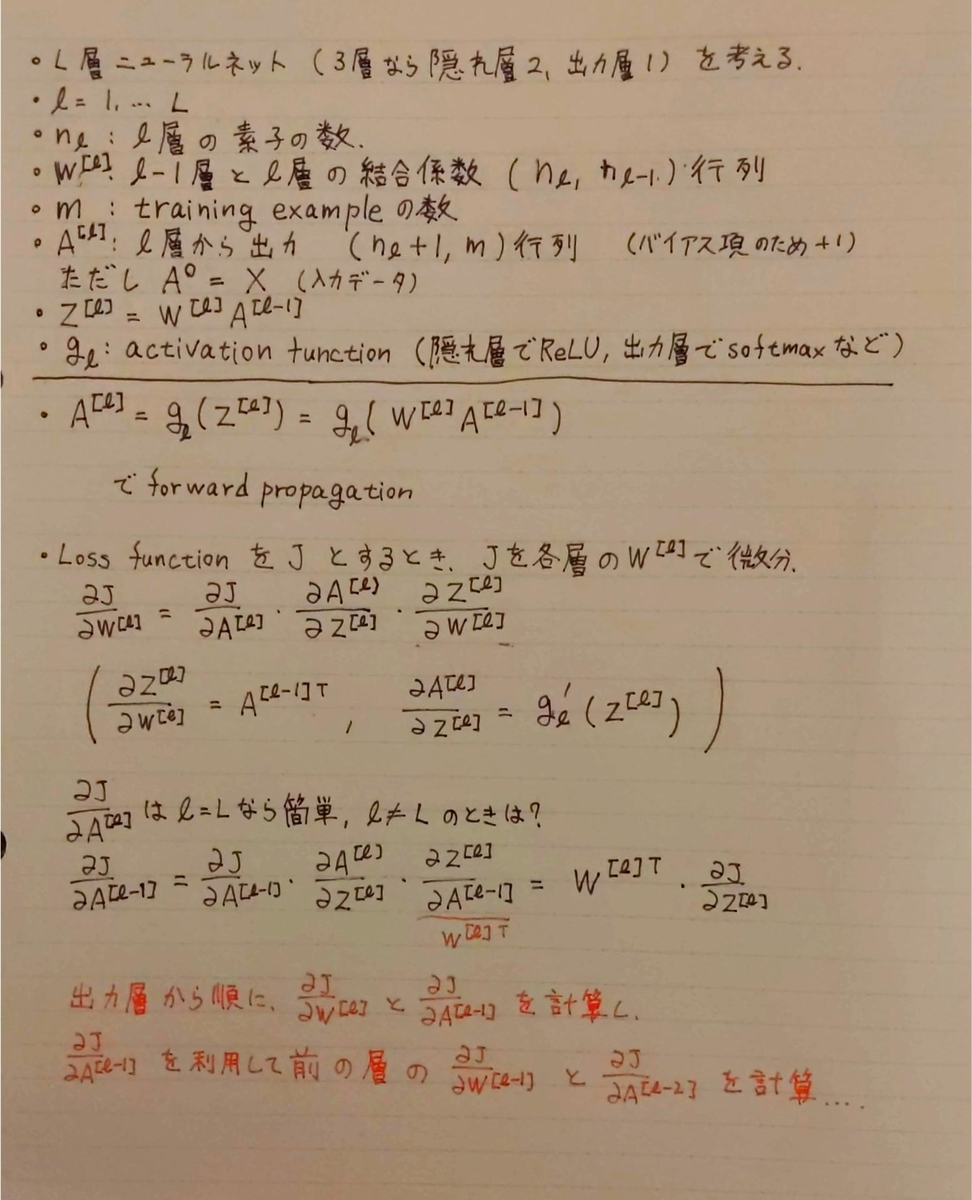 • L層ニューラルネット (3層なら隠れ層2, 出力層1) を考える.
• ℓ = 1, … L
• nℓ : ℓ層の素子の数.
• W[ℓ]: ℓ-1層とℓ層の結合係数 (nℓ, nℓ-1) 行列
• m : training example の数
• A[ℓ]: ℓ層から出力 (nℓ+1, m) 行列 (バイアス項のため+1)
ただし A⁰ = X (入力データ)
• Z[ℓ] = W[ℓ] A[ℓ-1]
• gℓ : activation function (隠れ層でReLU, 出力層でsoftmaxなど)
• A[ℓ] = gℓ(Z[ℓ]) = gℓ(W[ℓ] A[ℓ-1])
で forward propagation
• Loss function を J とするとき, Jを各層のW[ℓ]で微分.
∂J/∂W[ℓ] = ∂J/∂A[ℓ] · ∂A[ℓ]/∂Z[ℓ] · ∂Z[ℓ]/∂W[ℓ]
( ∂Z[ℓ]/∂W[ℓ] = A[ℓ-1]T , ∂A[ℓ]/∂Z[ℓ] = gℓ'(Z[ℓ]) )
∂J/∂A[ℓ] は ℓ=L なら簡単, ℓ≠L のときは?
∂J/∂A[ℓ-1] = ∂J/∂A[ℓ-1] · ∂A[ℓ]/∂Z[ℓ] · ∂Z[ℓ]/∂A[ℓ-1] = W[ℓ]T · ∂J/∂Z[ℓ]
W[ℓ]T
出力層から順に, ∂J/∂W[ℓ] と ∂J/∂A[ℓ-1] を計算し,
∂J/∂A[ℓ-1] を利用して前の層の ∂J/∂W[ℓ-1] と ∂J/∂A[ℓ-2] を計算....